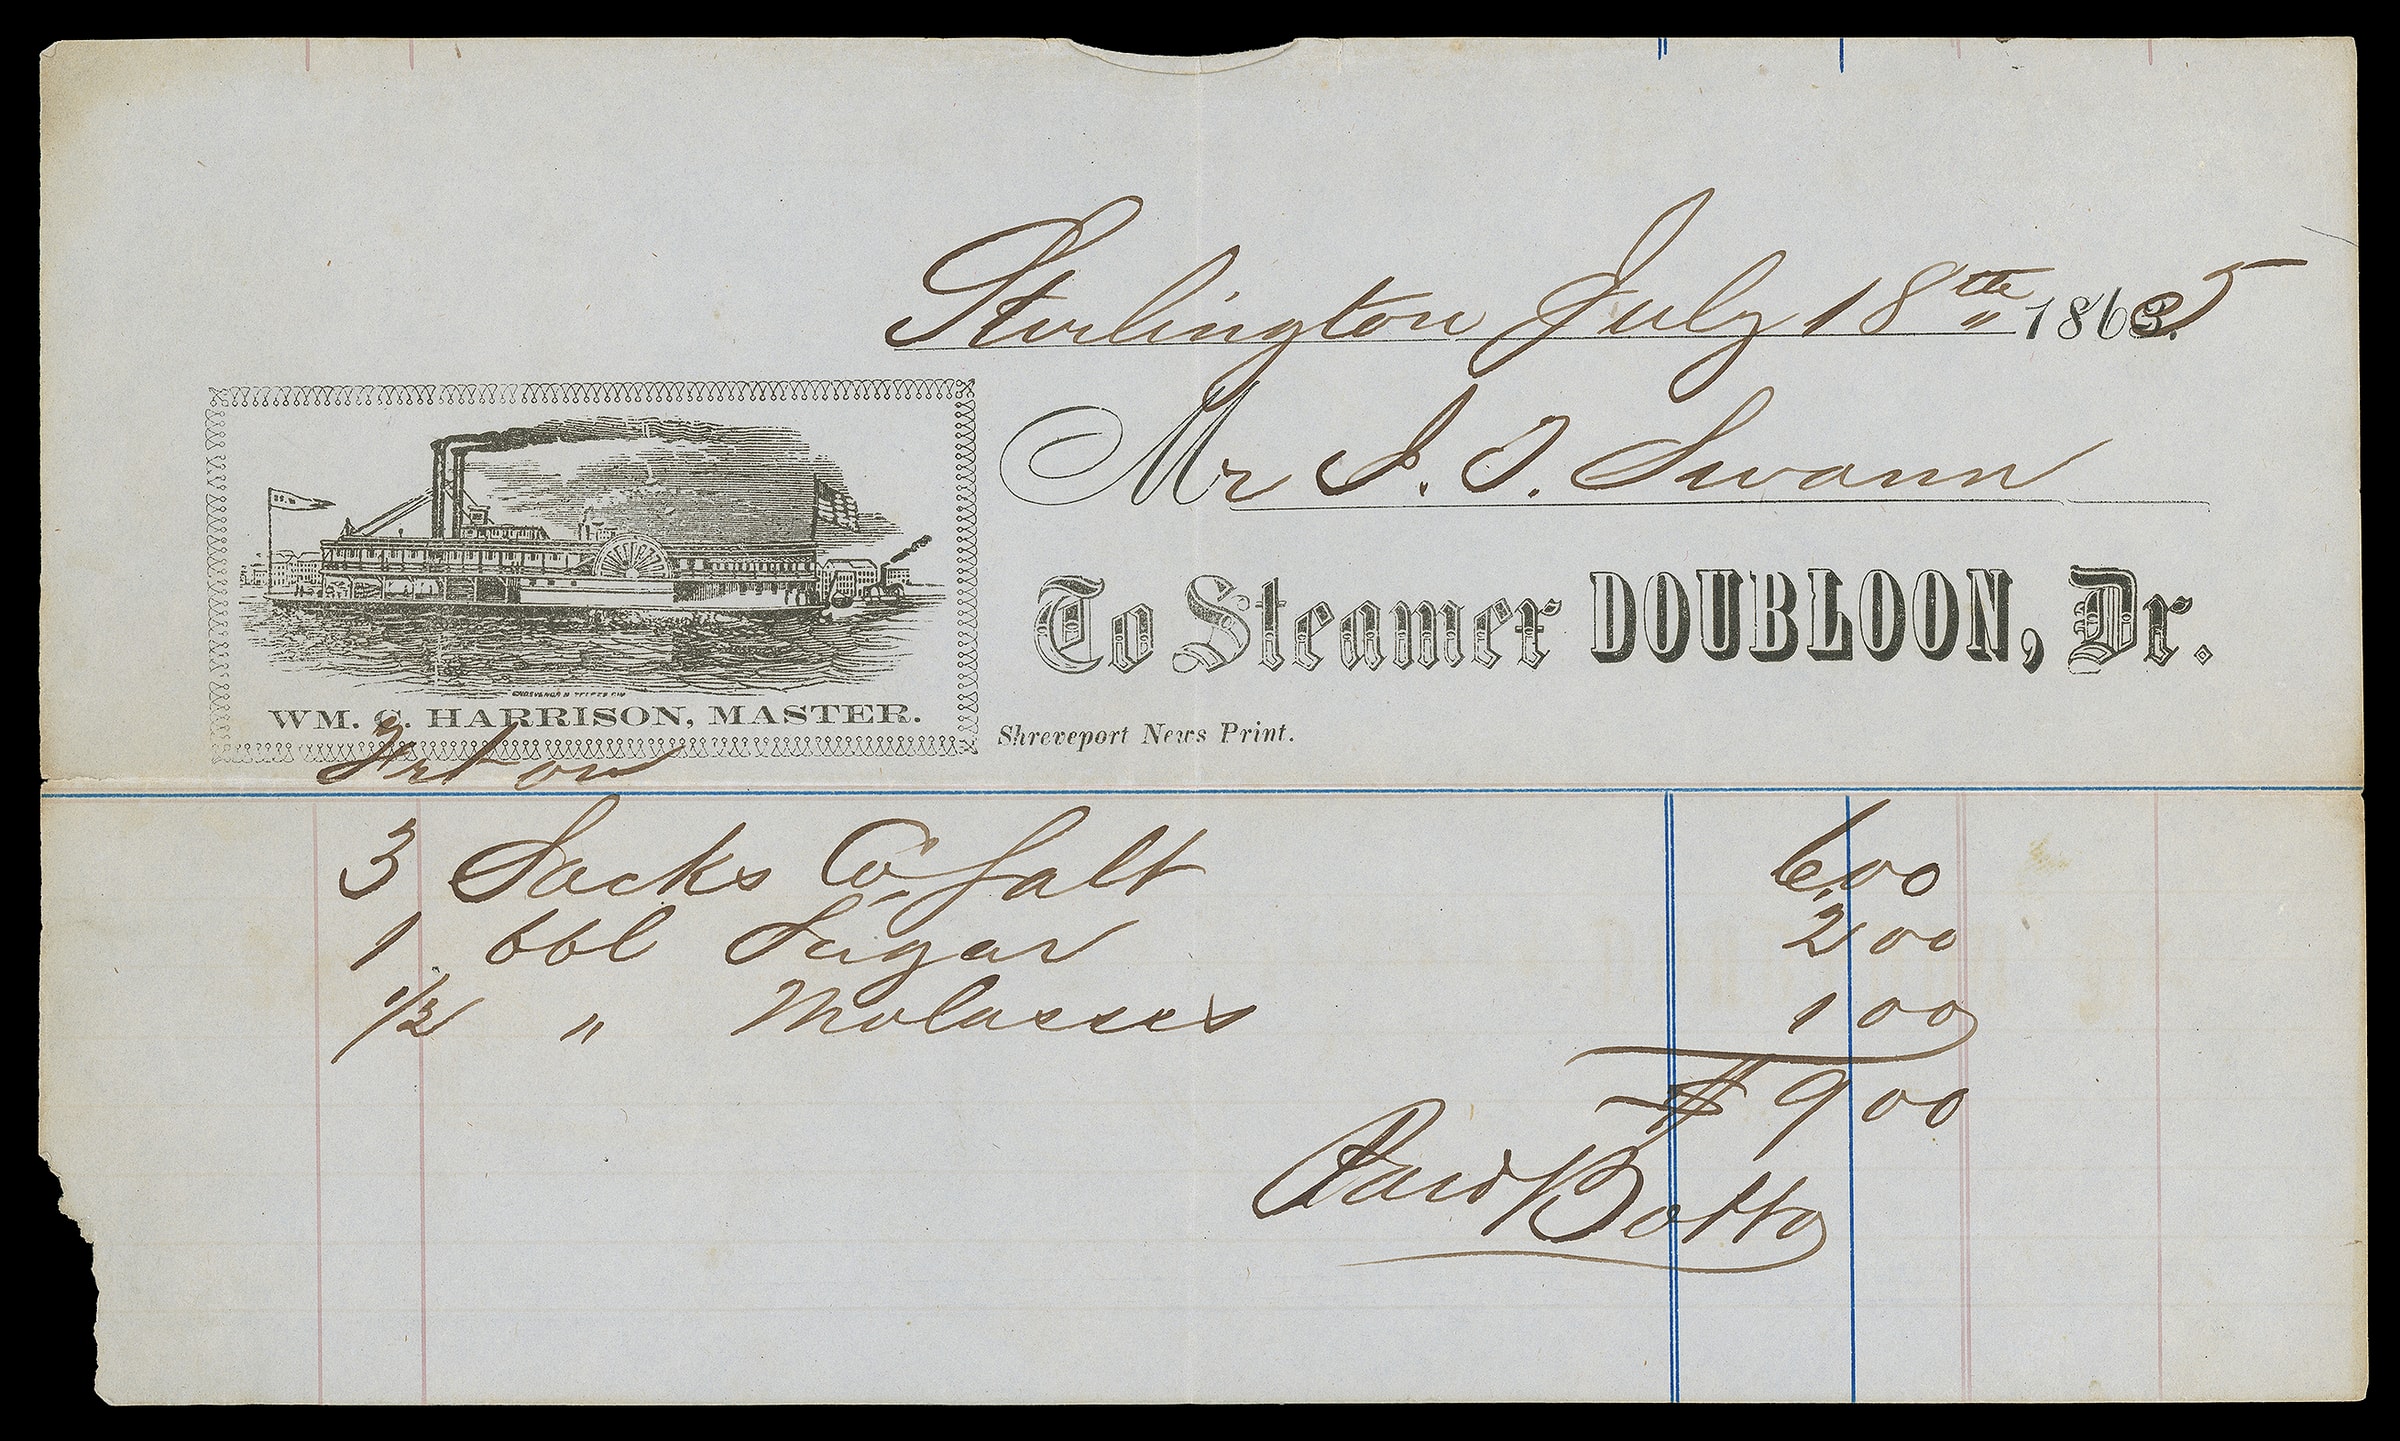 Sterlington July 18th 1865
Mr S. T. Swann
To Steamer DOUBLOON, Dr.
WM. C. HARRISON, MASTER.
Shreveport News Print.
Frt on
3 Sacks Co Salt 6.00
1 bbl Sugar 2 00
1/2 " Molasses 1 00
$ 9 00
Paid Botto